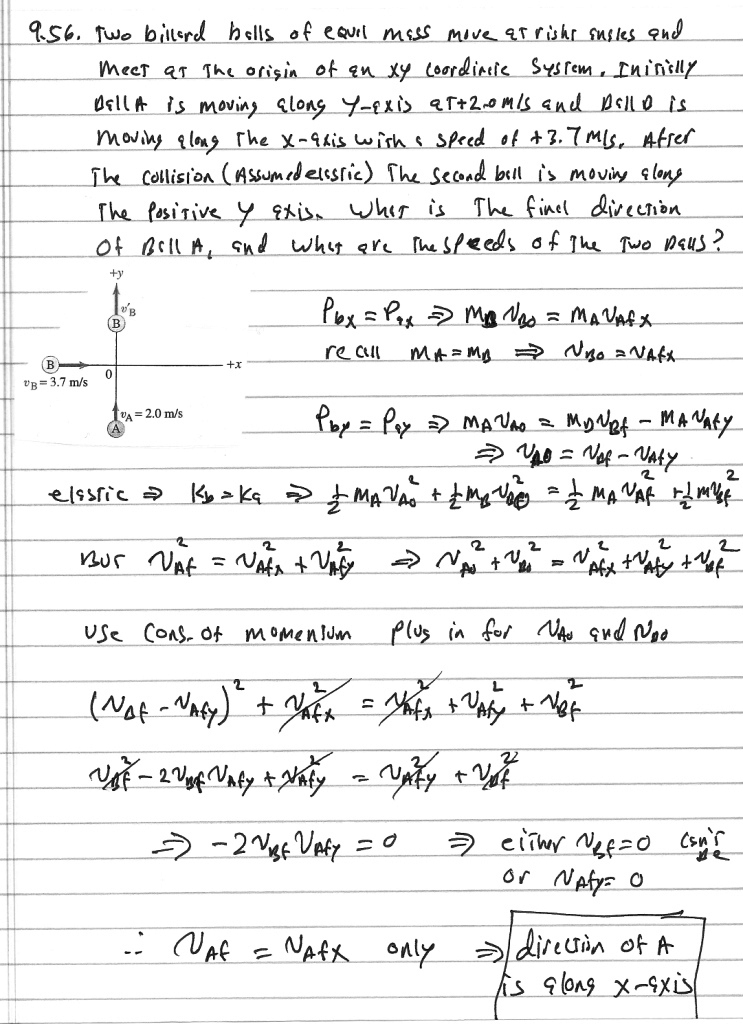 9.56. Two billard balls of equal mass move at right angles and
meet at the origin of an xy coordinate system. Initially
Ball A is moving along y-axis at +2.0 m/s and Ball B is
moving along the x-axis with a speed of +3.7 m/s. After
the collision (Assumed elastic) the second ball is moving along
the positive y axis. What is the final direction
of Ball A, and what are the speeds of the two balls?
+y
v'B
B
B
vB = 3.7 m/s
0
+x
vA = 2.0 m/s
A
Pbx = Pax ⇒ MB VBo = MA VAfx
recall MA = MB ⇒ VBo = VAfx
Pby = Pay ⇒ MA VAo = MB VBf - MA VAfy
⇒ VAo = VBf - VAfy
elastic ⇒ Kb = Ka ⇒ 1/2 MA VAo² + 1/2 MB VBo² = 1/2 MA VAf² + 1/2 M VBf²
But VAf² = VAfx² + VAfy² ⇒ VAo² + VBo² = VAfx² + VAfy² + VBf²
Use Cons. of momentum plug in for VAo and VBo
(VBf - VAfy)² + VAfx² = VAfx² + VAfy² + VBf²
VBf² - 2VBf VAfy + VAfy² = VAfy² + VBf²
⇒ -2VBf VAfy = 0 ⇒ either VBf = 0 Can't be
or VAfy = 0
∴ VAf = VAfx only ⇒ direction of A
is along x-axis